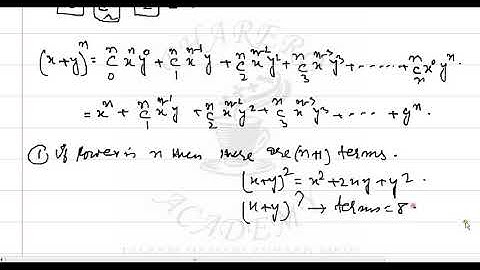 (x+y)ⁿ = ⁿC₀ xⁿy⁰ + ⁿC₁ xⁿ⁻¹y + ⁿC₂ xⁿ⁻²y² + ⁿC₃ xⁿ⁻³y³ + ...... + ⁿCₙ x⁰yⁿ.
= xⁿ + ⁿC₁ xⁿ⁻¹y + ⁿC₂ xⁿ⁻²y² + ⁿC₃ xⁿ⁻³y³ + ... + yⁿ.
① If Power is n then there are (n+1) terms.
(x+y)² = x²+2xy+y².
(x+y)⁷ → terms = 8
ACADEMY